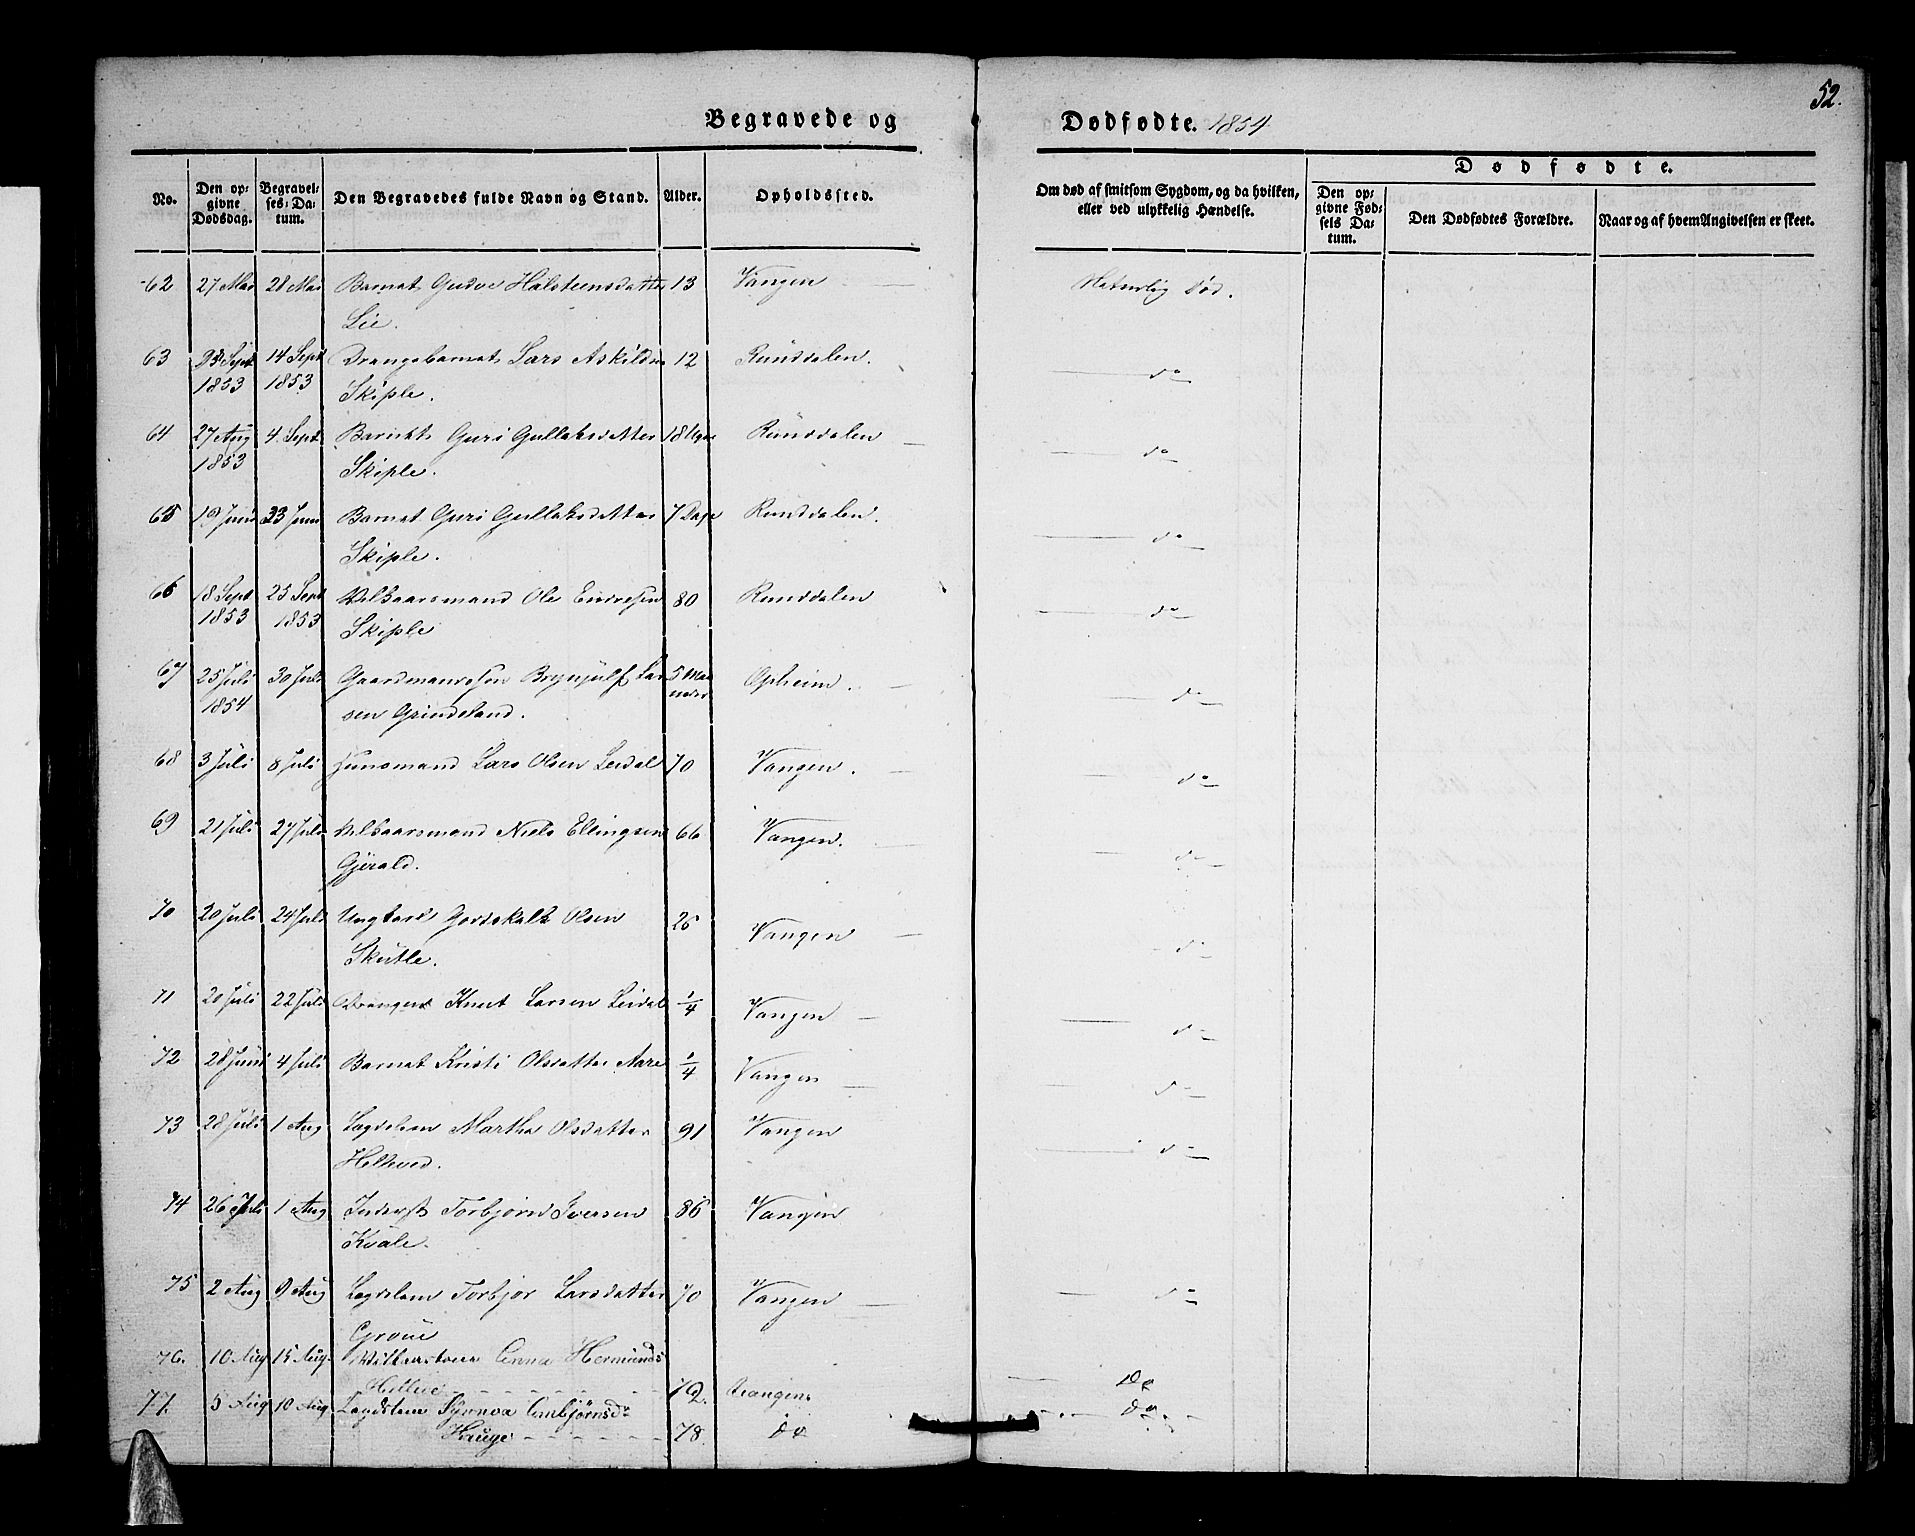 52.
Begravede og Dødfødte. 1854
No. Den opgivne Dødsdag. Begravelses-Datum. Den Begravedes fulde Navn og Stand. Alder. Opholdssted. Om død af smitsom Sygdom, og da hvilken, eller ved ulykkelig Hændelse. Dødfødte.
Den opgivne Fødsels Datum. Den Dødfødtes Forældre. Naar og af hvem Angivelsen er skeet.
62 27 Mai 28 Mai Barnet Gudve Halsteensdatter 13 Vangen Naturlig Død.
Lie.
63 Sept 14 Sept Drengebarnet Lars Askildsen 12 Runddalen. do
1853 1853 Skiple.
64 27 Aug 4. Sept Guri Gullaksdatter 18 Uger Runddalen do
1853 Skiple.
65 19 Juni 23 Juni Barnet Guri Gullaksdatter 7 Dage Runddalen. do
Skiple.
66 18 Sept 25 Sept Vilkaarsmand Ole Endresen 80 Runddalen do
1853 1853 Skiple
67 25 Juli 30 Juli Gaardmandssøn Brynjulf Lar 5 Maa Opheim. do
1854 sen Grindeland. neder
68 3 Juli 8 Juli Huusmand Lars Olsen Leidal 70 Vangen. do
69 21 Juli 27 Juli Vilkaarsmand Niels Ellingsen 66 Vangen. do
Gjerald.
70 20 Juli 24 Juli Ungkarl Godskalk Olsen 26 Vangen do
Skutle.
71 20 Juli 22 Juli Drengen Knut Larsen Leidal 1/4 Vangen do
72 28 Juni 4 Juli Barnet Kristi Olsdatter Aare 1/4 Vangen do
73 28 Juli 1 Aug Lægdslem Martha Olsdatter 91 Vangen do
Helhved.
74 26 Juli 1 Aug Inderst Torbjørn Iversen 86 Vangen
Kvale.
75 2 Aug 9 Aug Lægdslem Torbjør Larsdatter 70 Vangen do
Grove
76. 10 Aug 15 Aug. Anna Hermunds
72. Vangen. Do
77. 5 Aug 10 Aug. Lægdslem Synneva Anbjørnsdr Do
Hauge 78. do